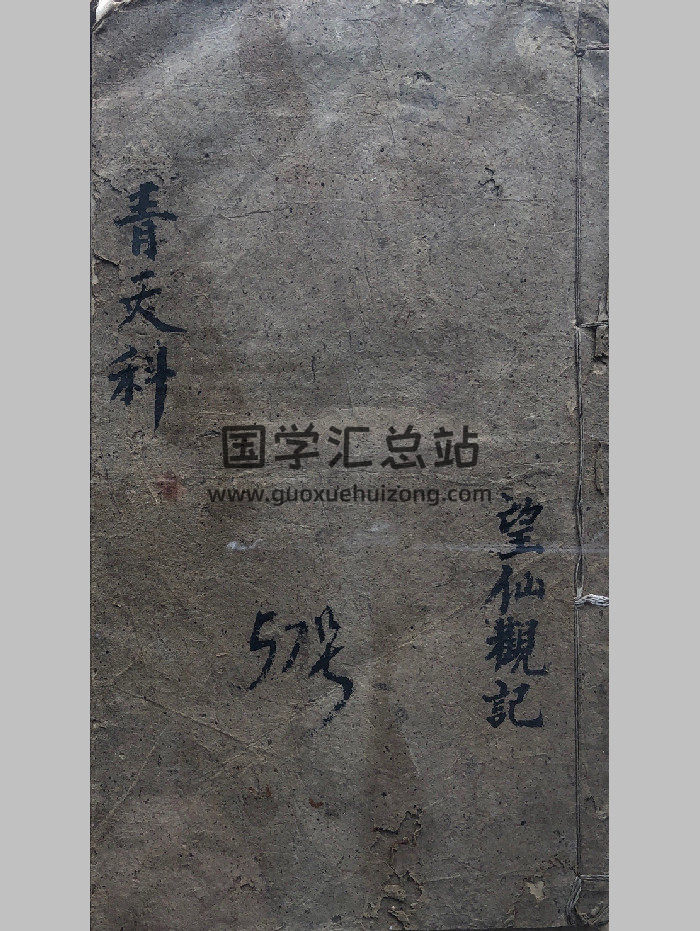 青天科
国学汇总站
www.guoxuehuizong.com
望仙觀記
57号